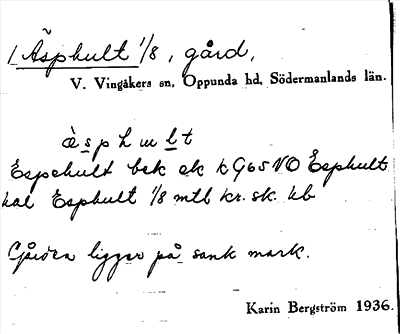 1 Äsphult 1/8, gård,
V. Vingåkers sn, Oppunda hd, Södermanlands län.
æ̀ s p h u l t
Espehult bek ek k G65 VO Äsphult
kal Esphult 1/8 mtl kr. sk. hb
Gården ligger på sank mark.
Karin Bergström 1936.